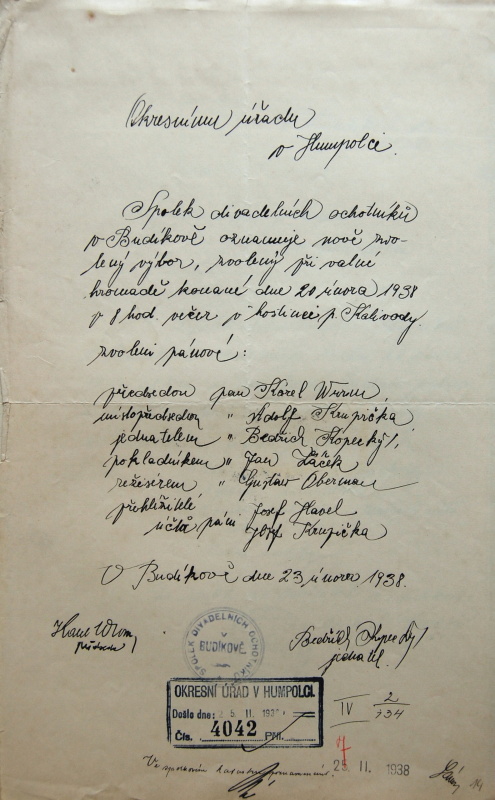 Okresnímu úřadu
v Humpolci.
Spolek divadelních ochotníků
v Budíkově oznamuje nově zvo-
lený výbor, zvolený při valné
hromadě konané dne 20 února 1938
v 8 hod. večer v hostinci p. Kalivody.
Zvoleni pánové:
předsedou pan Karel Wurm,
místopředsedou " Adolf Krupička
jednatelem " Bedřich Kopecký,
pokladníkem " Jan Žáček
režisérem " Gustav Oberman
přehlížitelé Josef Havel
účtů páni Josef Krupička
V Budíkově dne 23 února 1938.
předseda
Bedřich Kopecký
jednatel.
SPOLEK DIVADELNÍCH OCHOTNÍKŮ
V
BUDÍKOVĚ.
OKRESNÍ ÚŘAD V HUMPOLCI.
Došlo dne: 25. II. 1938
Čís. 4042 Příl.
IV 2/734
Ve spolkovém katastru poznamenáno.
25 II. 1938